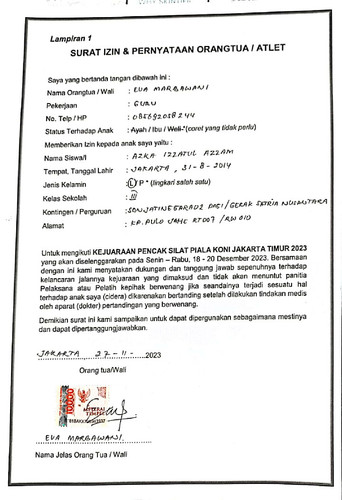 Lampiran 1
SURAT IZIN & PERNYATAAN ORANGTUA / ATLET
Saya yang bertanda tangan dibawah ini :
Nama Orangtua / Wali : EVA MARGAWANI
Pekerjaan : GURU
No. Telp / HP : 085692058244
Status Terhadap Anak : Ayah / Ibu / Wali *(coret yang tidak perlu)
Memberikan Izin kepada anak saya yaitu :
Nama Siswa/i : AZKA IZZATUL AZZAM
Tempat, Tanggal Lahir : JAKARTA, 31-8-2014
Jenis Kelamin : L / P * (lingkari salah satu)
Kelas Sekolah : III
Kontingen / Perguruan : SDN JATINEGARA 02 PAGI / GERAK SATRIA NUSANTARA
Alamat : KP. PULO JAHE RT007 / RW 010
Untuk mengikuti KEJUARAAN PENCAK SILAT PIALA KONI JAKARTA TIMUR 2023
yang akan diselenggarakan pada Senin – Rabu, 18 - 20 Desember 2023. Bersamaan
dengan ini kami menyatakan dukungan dan tanggung jawab sepenuhnya terhadap
kelancaran jalannya kejuaraan yang dimaksud dan tidak akan menuntut panitia
Pelaksana atau Pelatih kepihak berwenang jika seandainya terjadi sesuatu hal
terhadap anak saya (cidera) dikarenakan bertanding setelah dilakukan tindakan medis
oleh aparat (dokter) pertandingan yang berwenang.
Demikian surat ini kami sampaikan untuk dapat dipergunakan sebagaimana mestinya
dan dapat dipertanggungjawabkan.
JAKARTA, 27-11- 2023
Orang tua/Wali
10000
METERAI
TEMPEL
EVA MARGAWANI
Nama Jelas Orang Tua / Wali